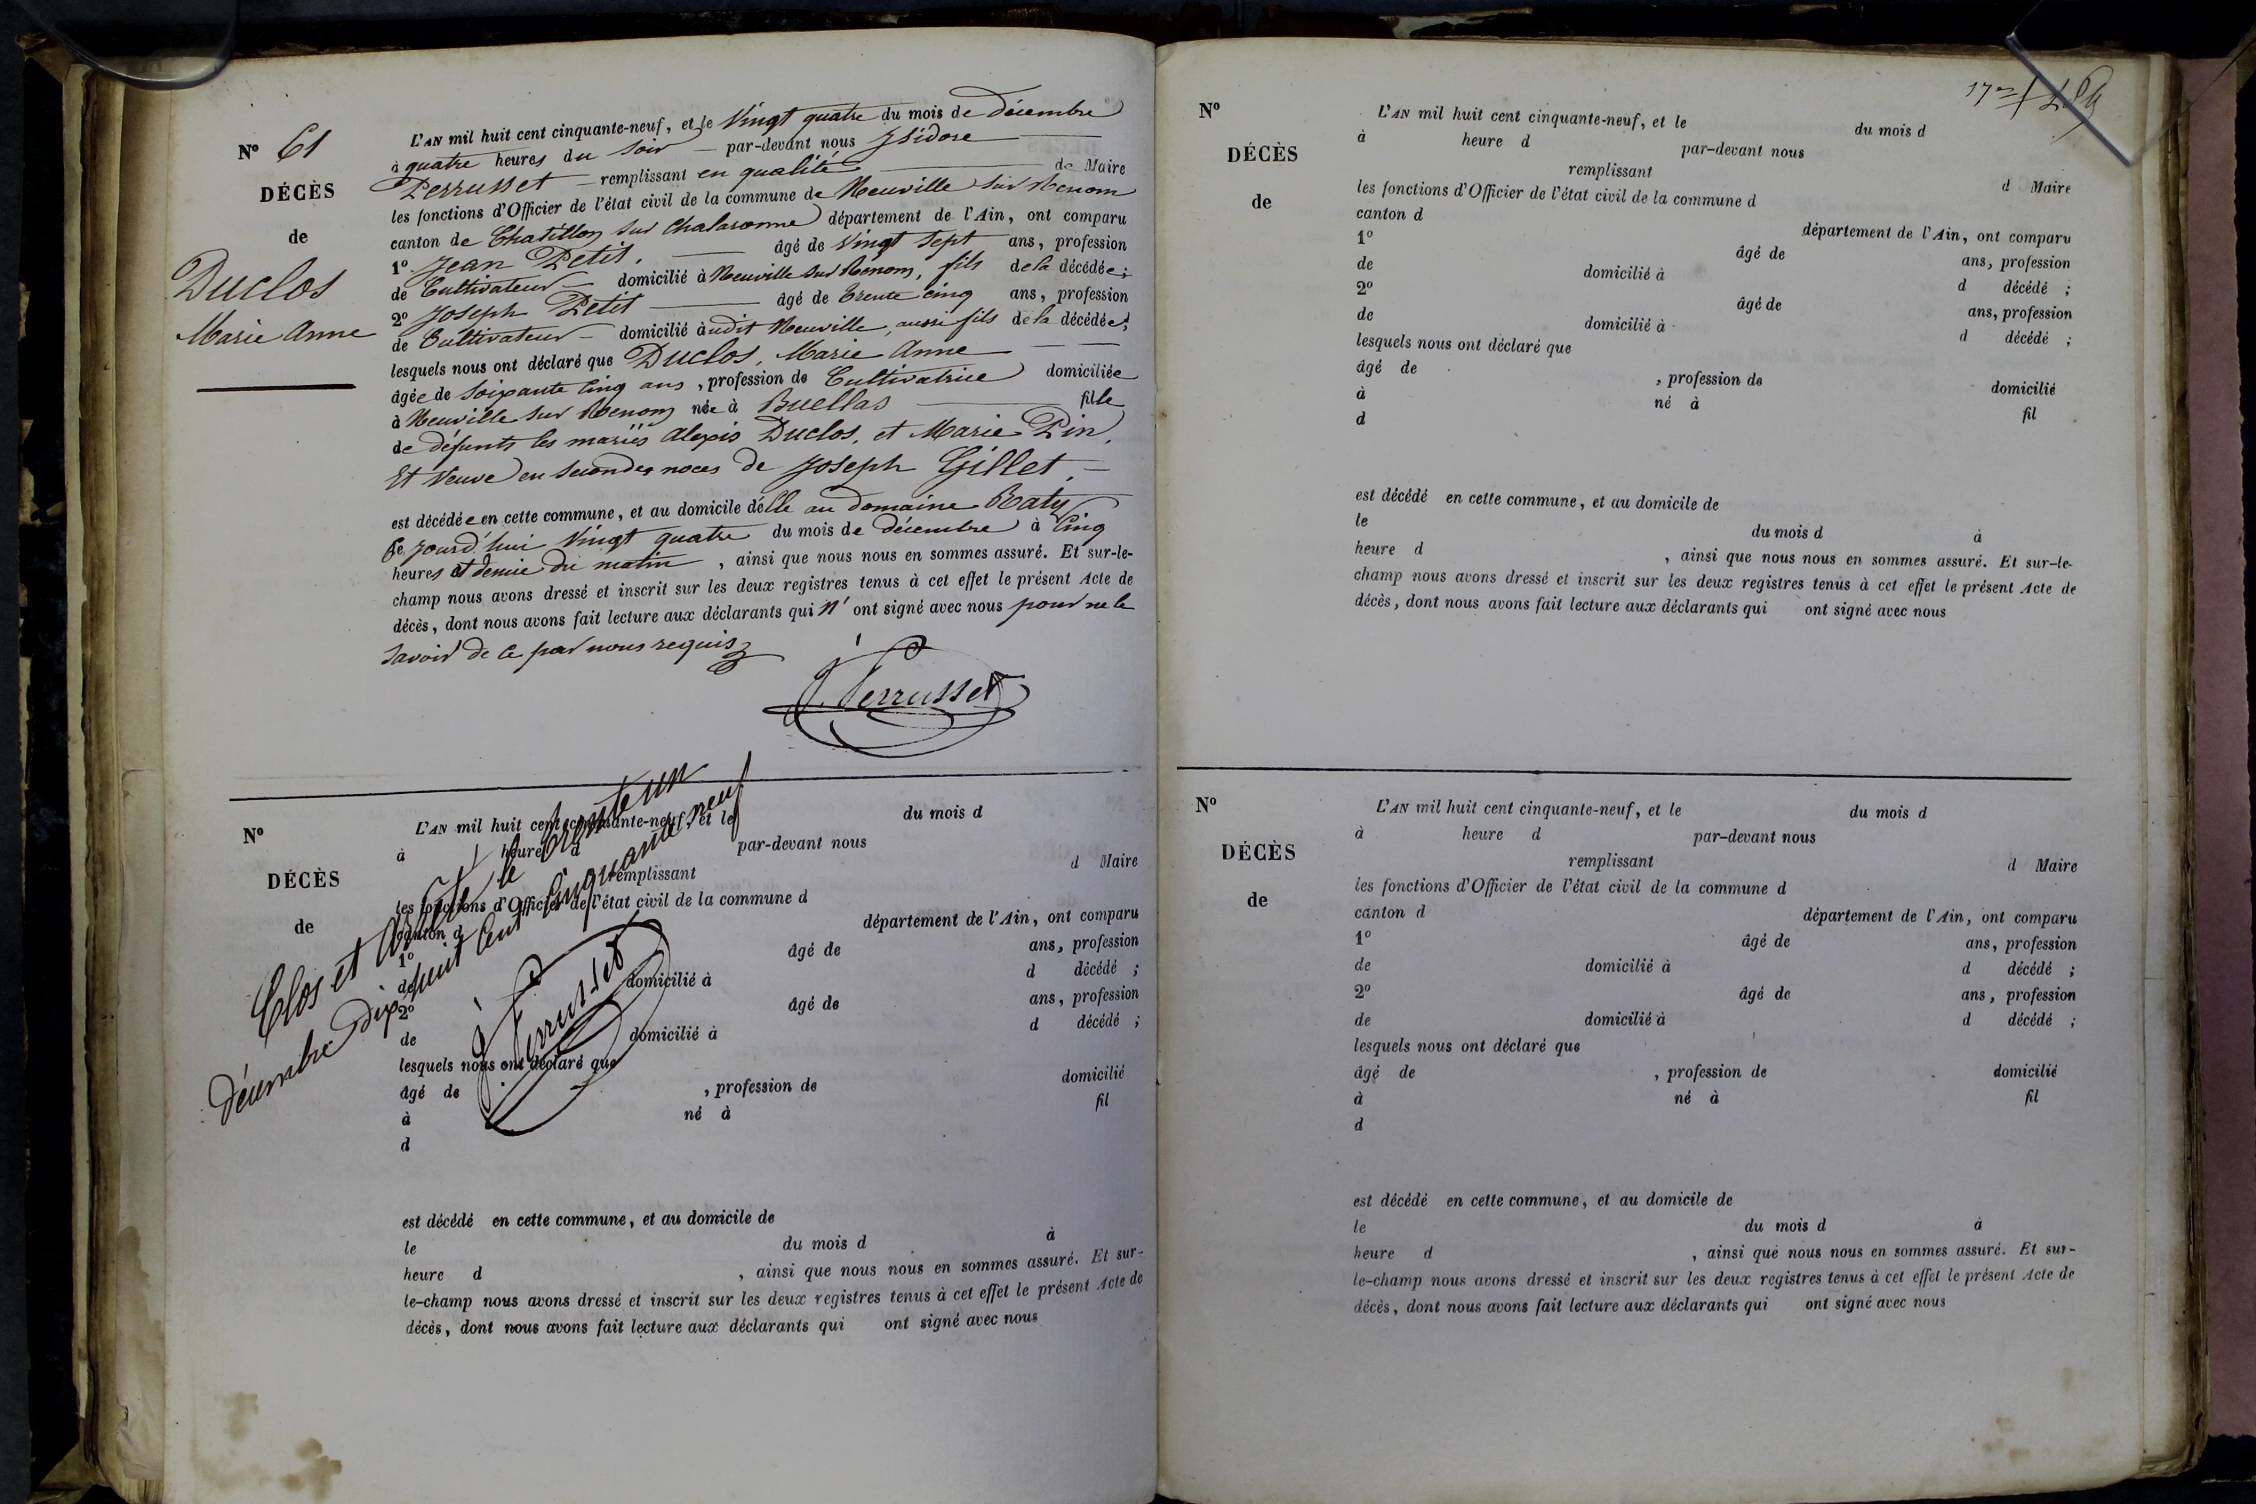 N° 61
DÉCÈS
de
Duclos
Marie Anne
L'AN mil huit cent cinquante-neuf, et le Vingt quatre du mois de Décembre
à quatre heures du soir par-devant nous Isidore
Perrusset remplissant en qualité de Maire
les fonctions d'Officier de l'état civil de la commune de Neuville sur Renom
canton de Chatillon sur Chalaronne département de l'Ain, ont comparu
1° Jean Petit, âgé de Vingt sept ans, profession
de Cultivateur domicilié à Neuville sur Renom, fils de la décédée;
2° Joseph Petit âgé de trente cinq ans, profession
de Cultivateur domicilié à udit Neuville, aussi fils de la décédée;
lesquels nous ont déclaré que Duclos, Marie Anne
âgée de soixante cinq ans, profession de Cultivatrice domiciliée
à Neuville sur Renom née à Buellas fille
de défunts les mariés Alexis Duclos, et Marie Pin,
Et Veuve en secondes noces de Joseph Gillet,
est décédée en cette commune, et au domicile d'elle au domaine Raty
Ce jourd'hui Vingt quatre du mois de décembre à Cinq
heures et demie du matin, ainsi que nous nous en sommes assuré. Et sur-le-
champ nous avons dressé et inscrit sur les deux registres tenus à cet effet le présent Acte de
décès, dont nous avons fait lecture aux déclarants qui n'ont signé avec nous pour ne le
savoir de ce par nous requis
J. Perrusset
N°
DÉCÈS
de
Clos et arrêté le trente un
décembre Dix huit Cent Cinquante neuf
J. Perrusset
L'AN mil huit cent cinquante-neuf, et le du mois d
à heure d par-devant nous
remplissant d Maire
les fonctions d'Officier de l'état civil de la commune d
canton d département de l'Ain, ont comparu
1° âgé de ans, profession
de domicilié à d décédé ;
2° âgé de ans, profession
de domicilié à d décédé ;
lesquels nous ont déclaré que
âgé de , profession de domicilié
à né à fil
d
est décédé en cette commune, et au domicile de
le du mois d à
heure d , ainsi que nous nous en sommes assuré. Et sur-
le-champ nous avons dressé et inscrit sur les deux registres tenus à cet effet le présent Acte de
décès, dont nous avons fait lecture aux déclarants qui ont signé avec nous
N°
DÉCÈS
de
L'AN mil huit cent cinquante-neuf, et le du mois d
à heure d par-devant nous
remplissant d Maire
les fonctions d'Officier de l'état civil de la commune d
canton d département de l'Ain, ont comparu
1° âgé de ans, profession
de domicilié à d décédé ;
2° âgé de ans, profession
de domicilié à d décédé ;
lesquels nous ont déclaré que
âgé de , profession de domicilié
à né à fil
d
est décédé en cette commune, et au domicile de
le du mois d à
heure d , ainsi que nous nous en sommes assuré. Et sur-le-
champ nous avons dressé et inscrit sur les deux registres tenus à cet effet le présent Acte de
décès, dont nous avons fait lecture aux déclarants qui ont signé avec nous
N°
DÉCÈS
de
L'AN mil huit cent cinquante-neuf, et le du mois d
à heure d par-devant nous
remplissant d Maire
les fonctions d'Officier de l'état civil de la commune d
canton d département de l'Ain, ont comparu
1° âgé de ans, profession
de domicilié à d décédé ;
2° âgé de ans, profession
de domicilié à d décédé ;
lesquels nous ont déclaré que
âgé de , profession de domicilié
à né à fil
d
est décédé en cette commune, et au domicile de
le du mois d à
heure d , ainsi que nous nous en sommes assuré. Et sur-
le-champ nous avons dressé et inscrit sur les deux registres tenus à cet effet le présent Acte de
décès, dont nous avons fait lecture aux déclarants qui ont signé avec nous